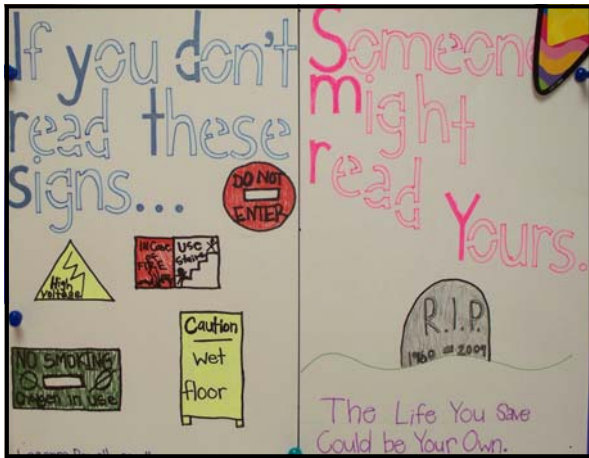 If you don't
read these
signs...
DO NOT
ENTER
High
Voltage
In Case
of
FIRE
Use
Stairs
NO SMOKING
Oxygen in Use
Caution
Wet
floor
Someone
might
read
Yours.
R.I.P.
1960 2009
The Life You Save
Could be Your Own.